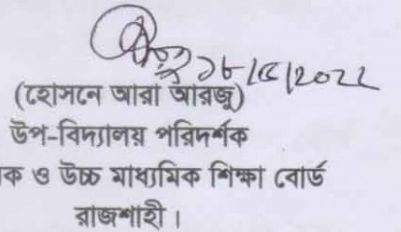 ১৮/৫/2022
(হোসনে আরা আরজু)
উপ-বিদ্যালয় পরিদর্শক
ক ও উচ্চ মাধ্যমিক শিক্ষা বোর্ড
রাজশাহী।